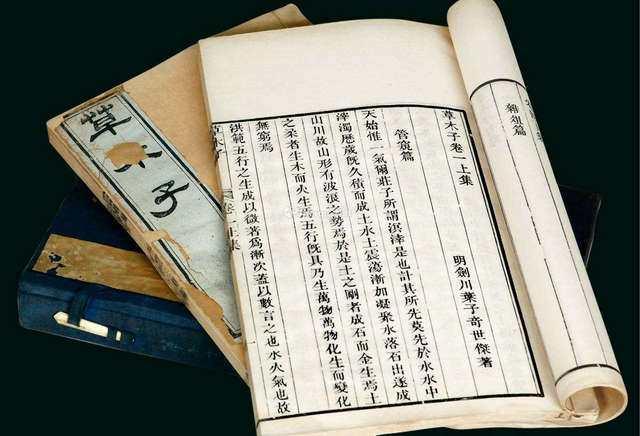 草木子
雜俎篇
草木子卷一上集
明劍川葉子奇世傑著
管窺篇
天始惟一氣爾莊子所謂溟涬是也計其所先莫先於水水中
滓濁歷歲旣久積而成土水土震蕩漸加凝聚水落石出遂成
山川故山形有波浪之勢焉於是土之剛者成石而金生焉土
之柔者生木而火生焉五行旣具乃生萬物萬物化生而變化
無窮焉
洪範五行之生成以微著爲漸次蓋以數言之也水火氣也故
草木子